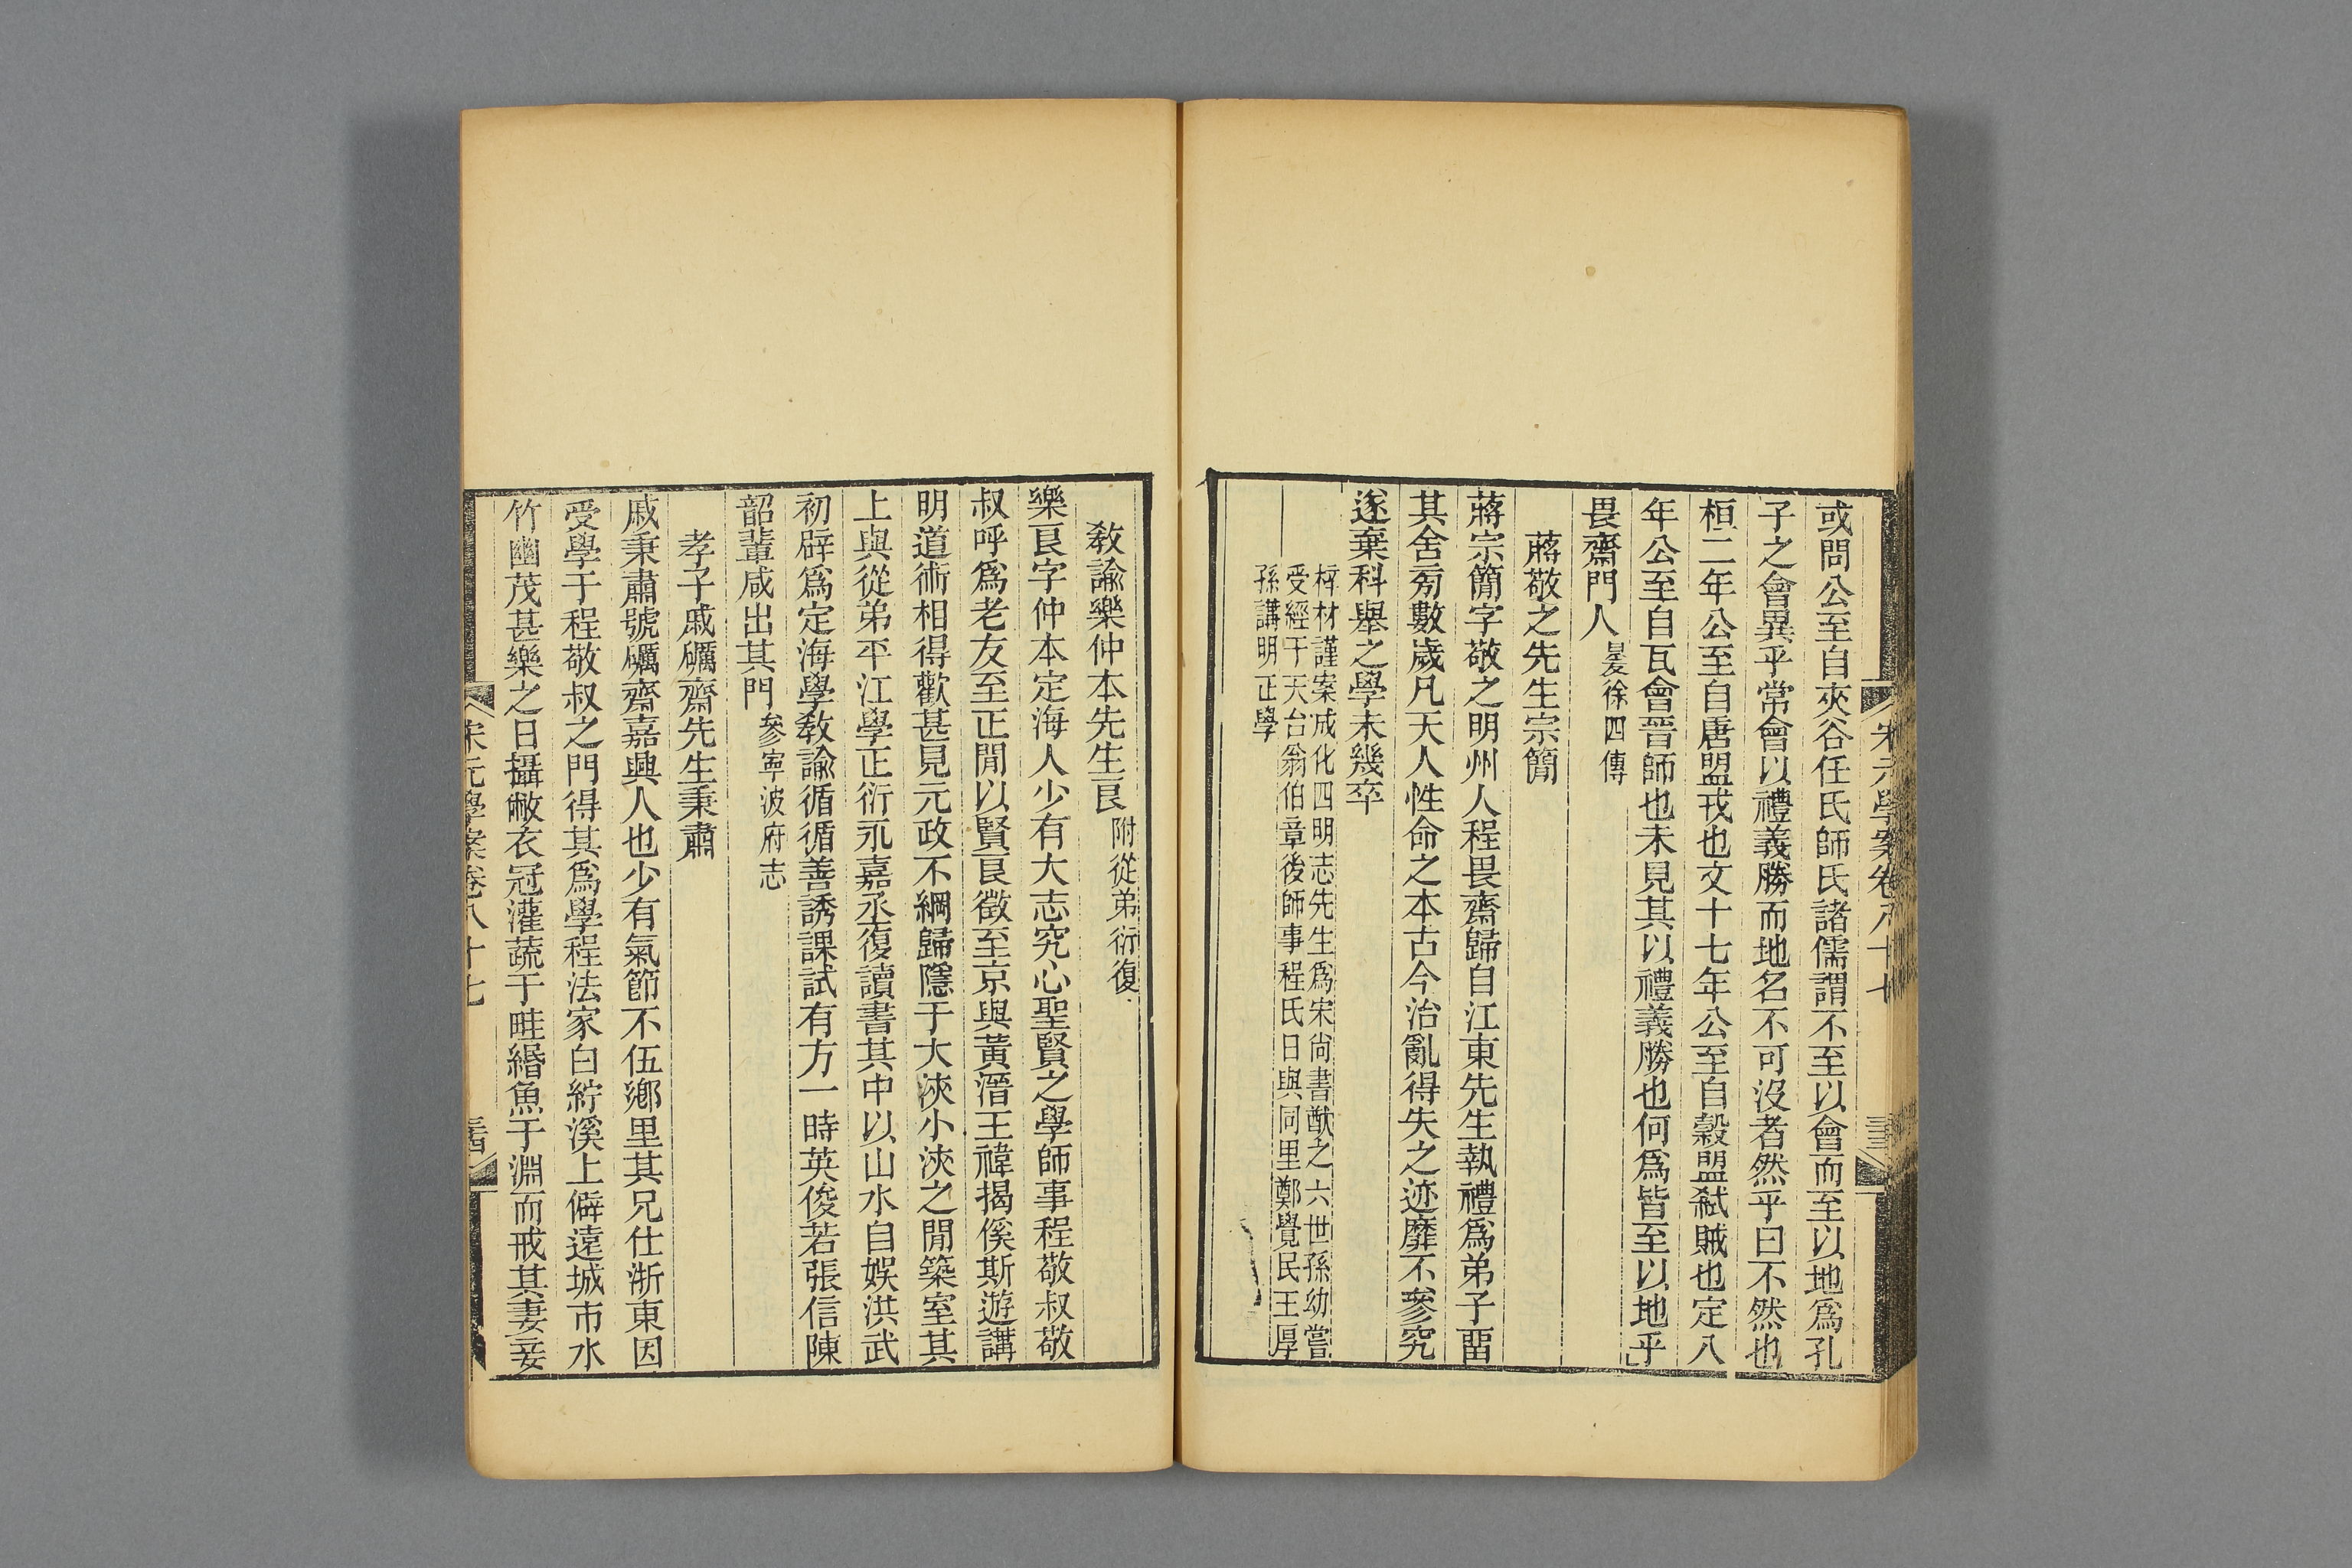 宋元學案卷八十七
或問公至自夾谷任氏師氏諸儒謂不至以會而至以地爲孔
子之會異乎常會以禮義勝而地名不可沒者然乎曰不然也
桓二年公至自唐盟戎也文十七年公至自穀盟弒賊也定八
年公至自瓦會晉師也未見其以禮義勝也何爲皆至以地乎
畏齋門人晏徐四傳
蔣敬之先生宗簡
蔣宗簡字敬之明州人程畏齋歸自江東先生執禮爲弟子畱
其舍㫄數歲凡天人性命之本古今治亂得失之迹靡不參究
遂棄科舉之學未幾卒
梓材謹案成化四明志先生爲宋尚書猷之六世孫幼嘗
受經于天台翁伯章後師事程氏日與同里鄭覺民王厚
孫講明正學
教諭樂仲本先生良附從弟衍復
樂良字仲本定海人少有大志究心聖賢之學師事程敬叔敬
叔呼爲老友至正閒以賢良徵至京與黃溍王禕揭傒斯遊講
明道術相得歡甚見元政不綱歸隱于大浹小浹之閒築室其
上與從弟平江學正衍永嘉丞復讀書其中以山水自娛洪武
初辟爲定海學教諭循循善誘課試有方一時英俊若張信陳
韶輩咸出其門參寧波府志
孝子戚礪齋先生秉肅
戚秉肅號礪齋嘉興人也少有氣節不伍鄉里其兄仕浙東因
受學于程敬叔之門得其爲學程法家白紵溪上僻遠城市水
竹幽茂甚樂之日攝敝衣冠灌蔬于畦緡魚于淵而戒其妻妾
宋元學案卷八十七